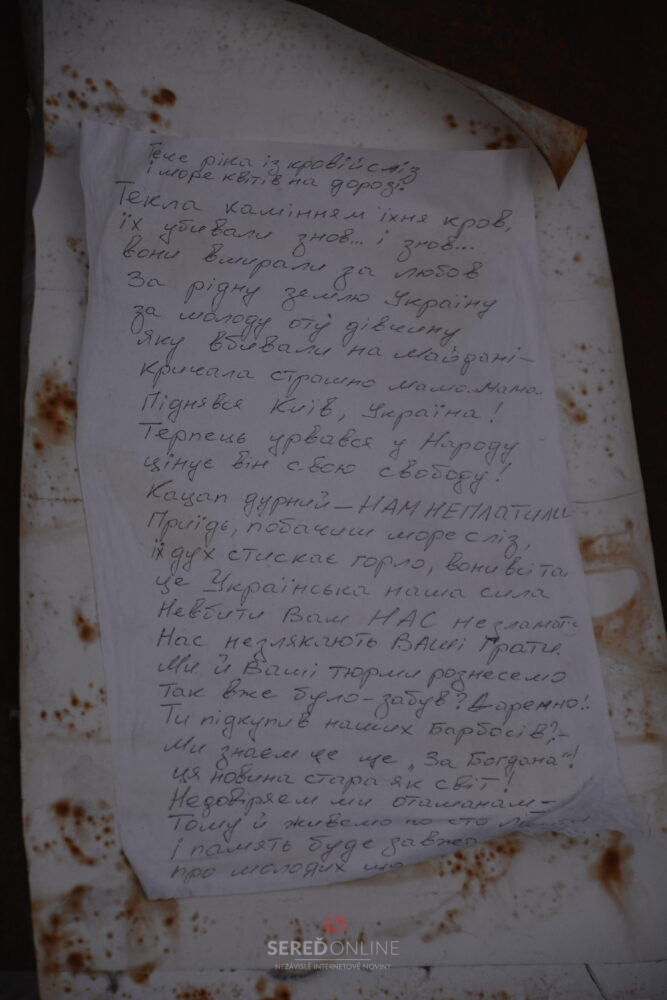 Тече ріка із кровій сліз
і море квітів на дорозі.
Текла камінням їхня кров,
їх убивали знов... і знов...
вони вмирали за любов
За рідну землю Україну
за молоду оту дівчину
яку вбивали на Майдані-
кричала страшно мамо-мамо
Піднявся Київ, Україна!
Терпець урвався у Народу
цінує він свою свободу!
Кацап дурний-НАМ НЕПЛАТИЛИ
Приїдь, побачиш море сліз,
їх дух стискає горло, вони
це Українська наша сила
Невбити Вам НАС
Нас незлякають ВАШі Грати
Ми й Ваші тюрми рознесемо
Так вже було-забув? Даремно!
Ти підкупив наших Барбосів?-
Ми знаєм це ще „За Богдана"!
ця новина стара як світ!
Недовіряєм ми отаманам-
Тому й живемо по сто
і память буде
про молодих
SEREĎONLINE
NEZÁVISLÉ INTERNETOVÉ NOVINY